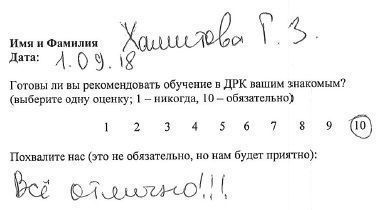 Имя и Фамилия Хамитова Г. З.
Дата: 1.09.18
Готовы ли вы рекомендовать обучение в ДРК вашим знакомым?
(выберите одну оценку; 1 – никогда, 10 – обязательно)
1 2 3 4 5 6 7 8 9 10
Похвалите нас (это не обязательно, но нам будет приятно):
Всё отлично!!!